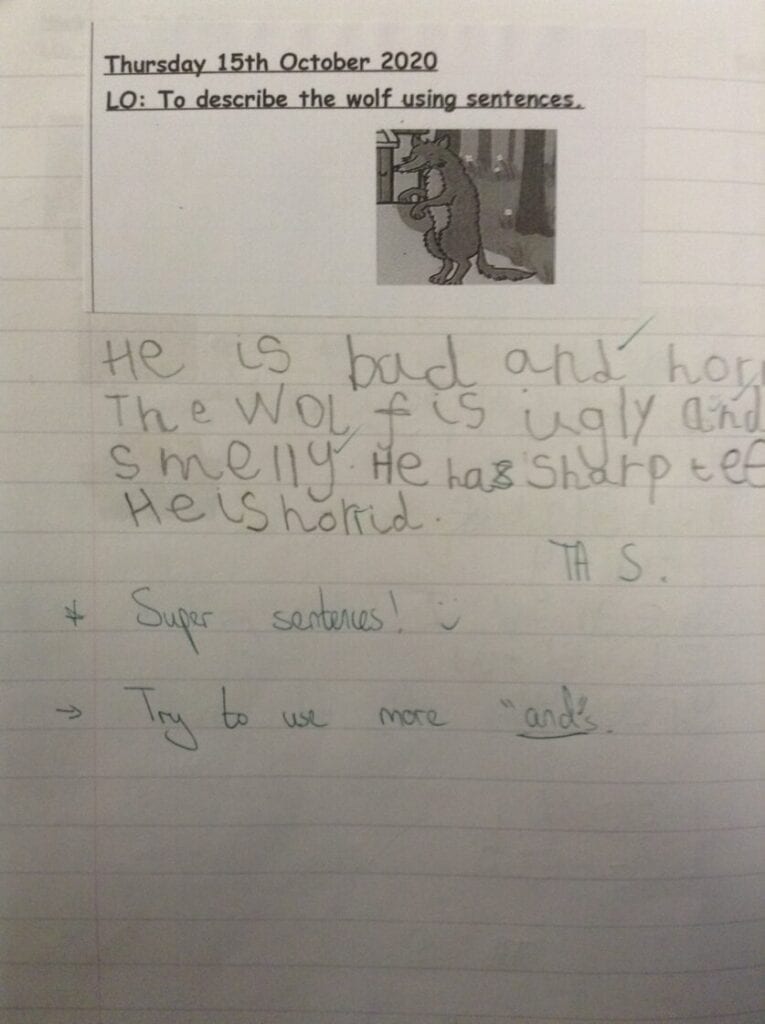 Thursday 15th October 2020
LO: To describe the wolf using sentences.
He is bad and horr
The WOLf is ugly and
smelly. He has Sharp tee
He is horrid.
TA S.
* Super sentences! :)
→ Try to use more "and"s.